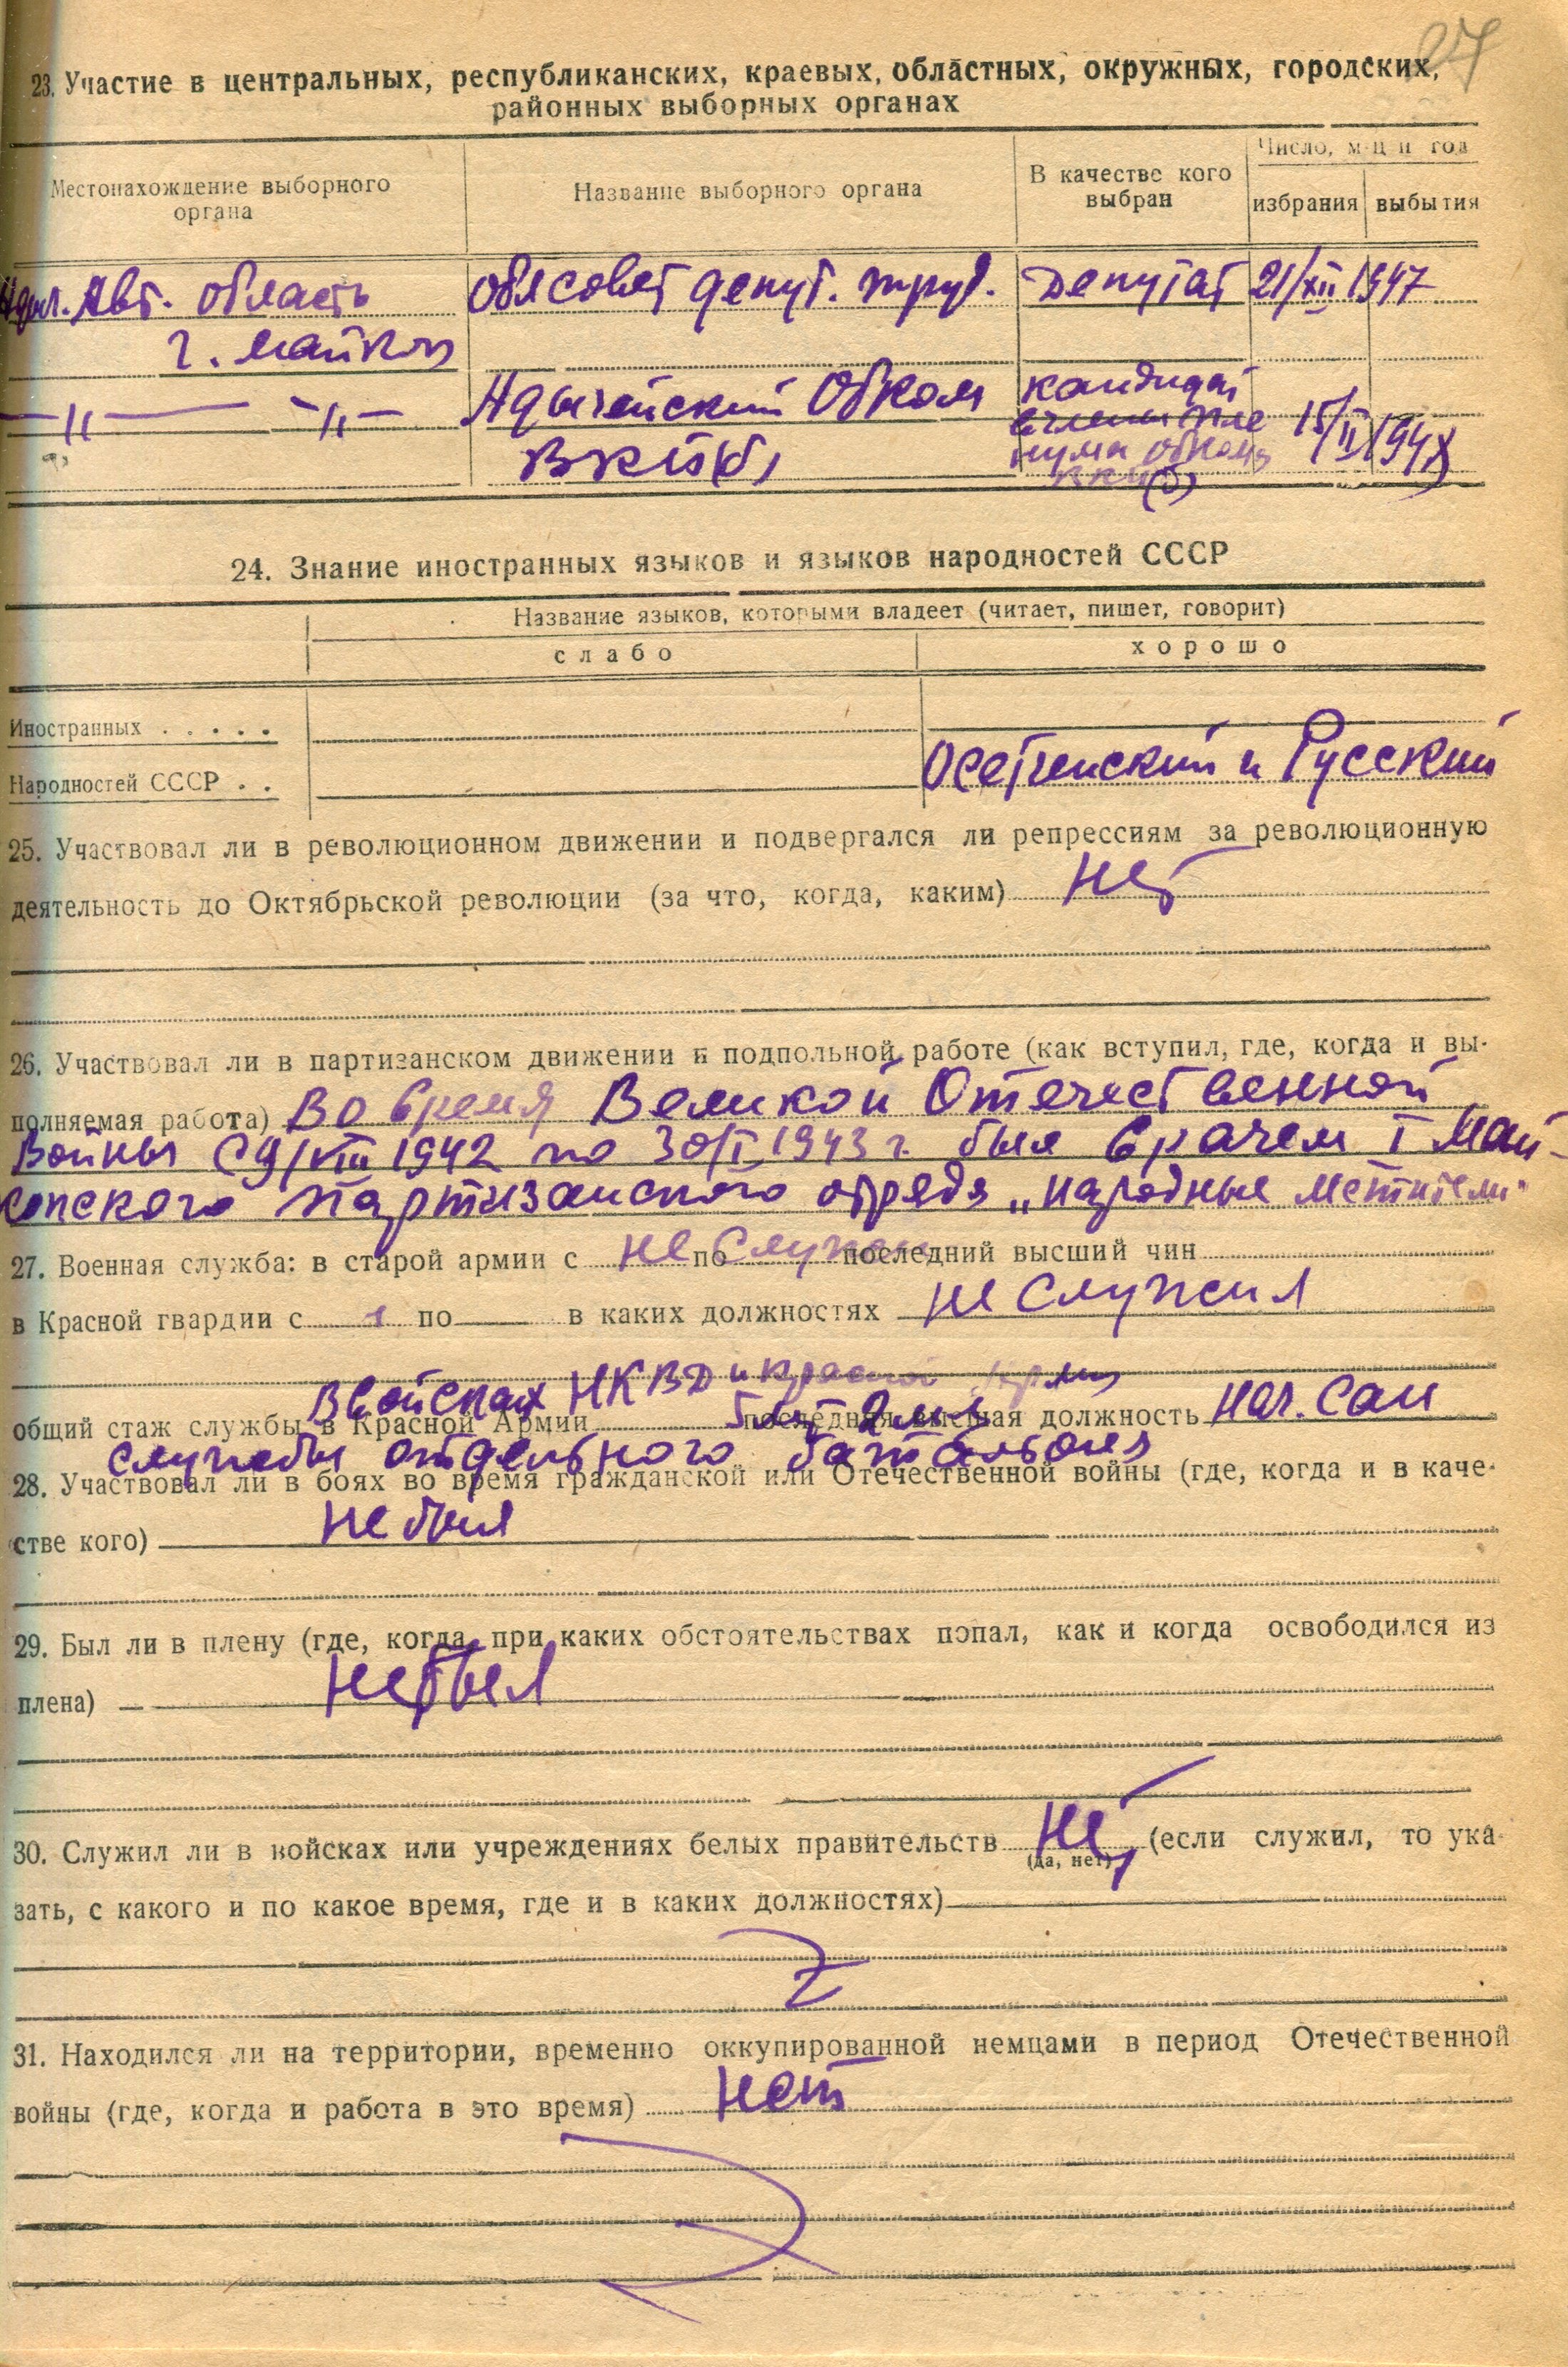 27
23. Участие в центральных, республиканских, краевых, областных, окружных, городских,
районных выборных органах
Местонахождение выборного органа
Название выборного органа
В качестве кого выбран
Число, м-ц и год
избрания
выбытия
Адыг. Авт. область Облсовет депут. труд. Депутат 21/XII 1947
г. Майкоп
—"— —"— Адыгейский Обком кандидат
в члены пле 15/II 1948
ВКП(б) нума обкома
ВКП(б)
24. Знание иностранных языков и языков народностей СССР
Название языков, которыми владеет (читает, пишет, говорит)
слабо хорошо
Иностранных . . . . .
Народностей СССР . . Осетинский и Русский
25. Участвовал ли в революционном движении и подвергался ли репрессиям за революционную
деятельность до Октябрьской революции (за что, когда, каким) Нет
26. Участвовал ли в партизанском движении и подпольной работе (как вступил, где, когда и вы-
полняемая работа) Во время Великой Отечественной
Войны с 9/VIII 1942 по 30/I 1943 г. был врачем I Май-
копского партизанского отряда „Народные мстители"
27. Военная служба: в старой армии с не по служил последний высший чин
в Красной гвардии с по в каких должностях не служил
В войсках НКВД и Красной Армии
общий стаж службы в Красной Армии последняя высшая должность нач. сан
службы отдельного батальона
28. Участвовал ли в боях во время гражданской или Отечественной войны (где, когда и в каче-
стве кого) не был
29. Был ли в плену (где, когда, при каких обстоятельствах попал, как и когда освободился из
плена) не был
30. Служил ли в войсках или учреждениях белых правительств Нет (если служил, то ука-
(да, нет)
зать, с какого и по какое время, где и в каких должностях)
31. Находился ли на территории, временно оккупированной немцами в период Отечественной
войны (где, когда и работа в это время) нет